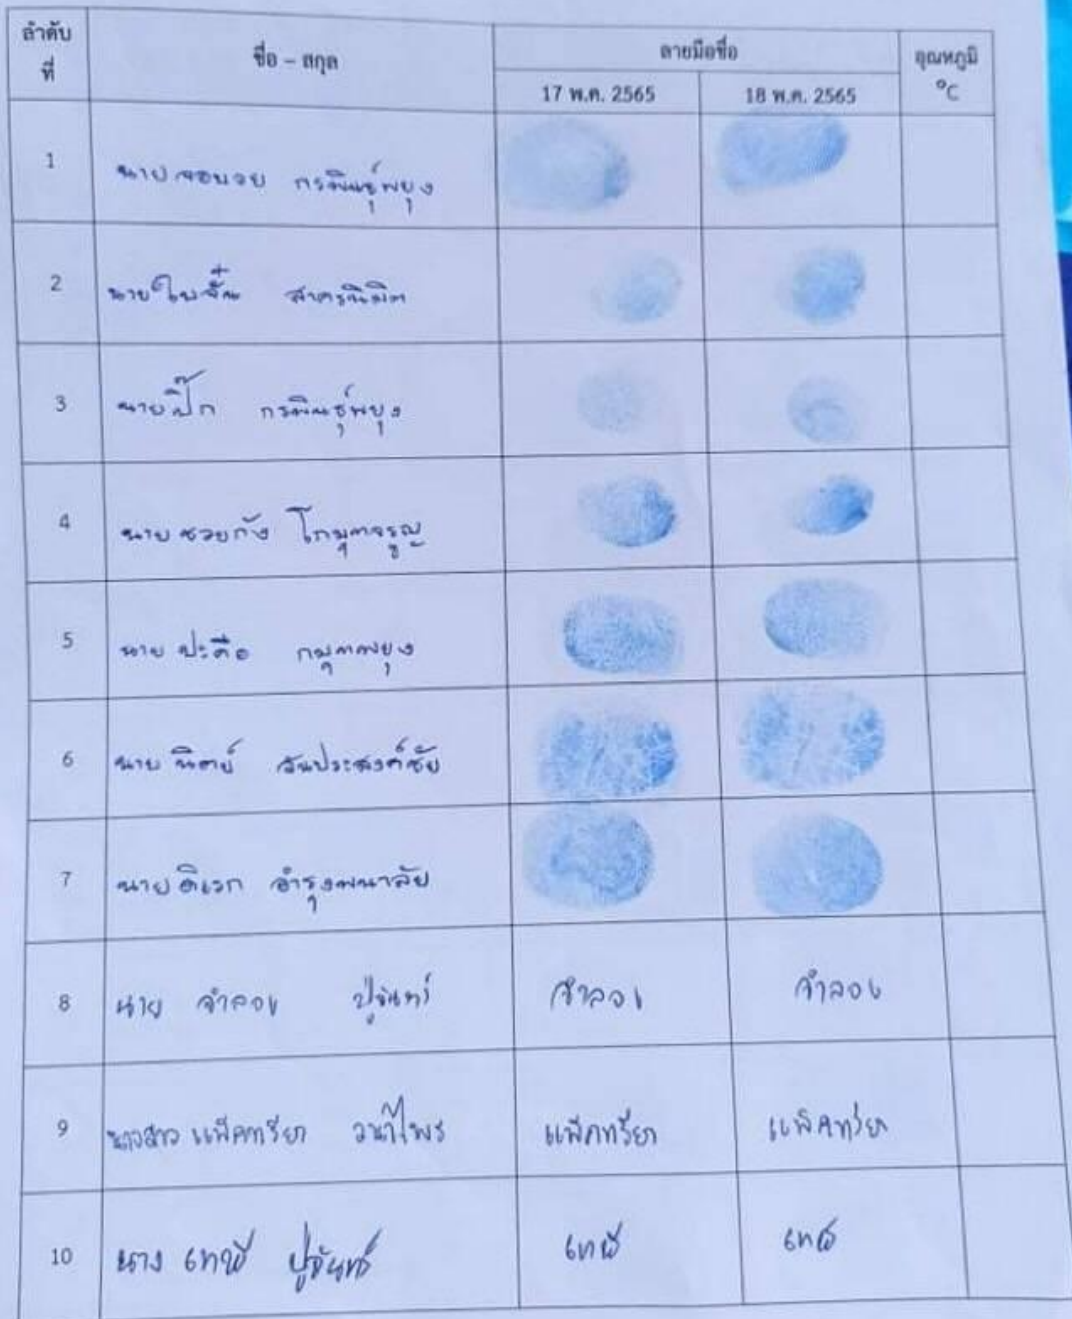 ลำดับ ที่ ชื่อ – สกุล ลายมือชื่อ อุณหภูมิ °C
17 พ.ค. 2565 18 พ.ค. 2565
1 นายจอบวย กรพินธุ์พยุง
2 นาย สาครนิมิต
3 นายปิ๊ก กรพินธุ์พยุง
4 นาย ซวยกัง โกมุทจรูญ
5 นาย ปะคือ กมุทพยุง
6 นาย นิตย์ วันประสงค์ชัย
7 นาย ดิเรก อำรุงพนาลัย
8 นาย จำลอง ปู่จันทร์ จำลอง จำลอง
9 นางสาว แพ็คทรียา วนาไพร แพ็คทรียา แพ็คทรียา
10 นาง เทวี ปู่จันทร์ เทวี เทวี